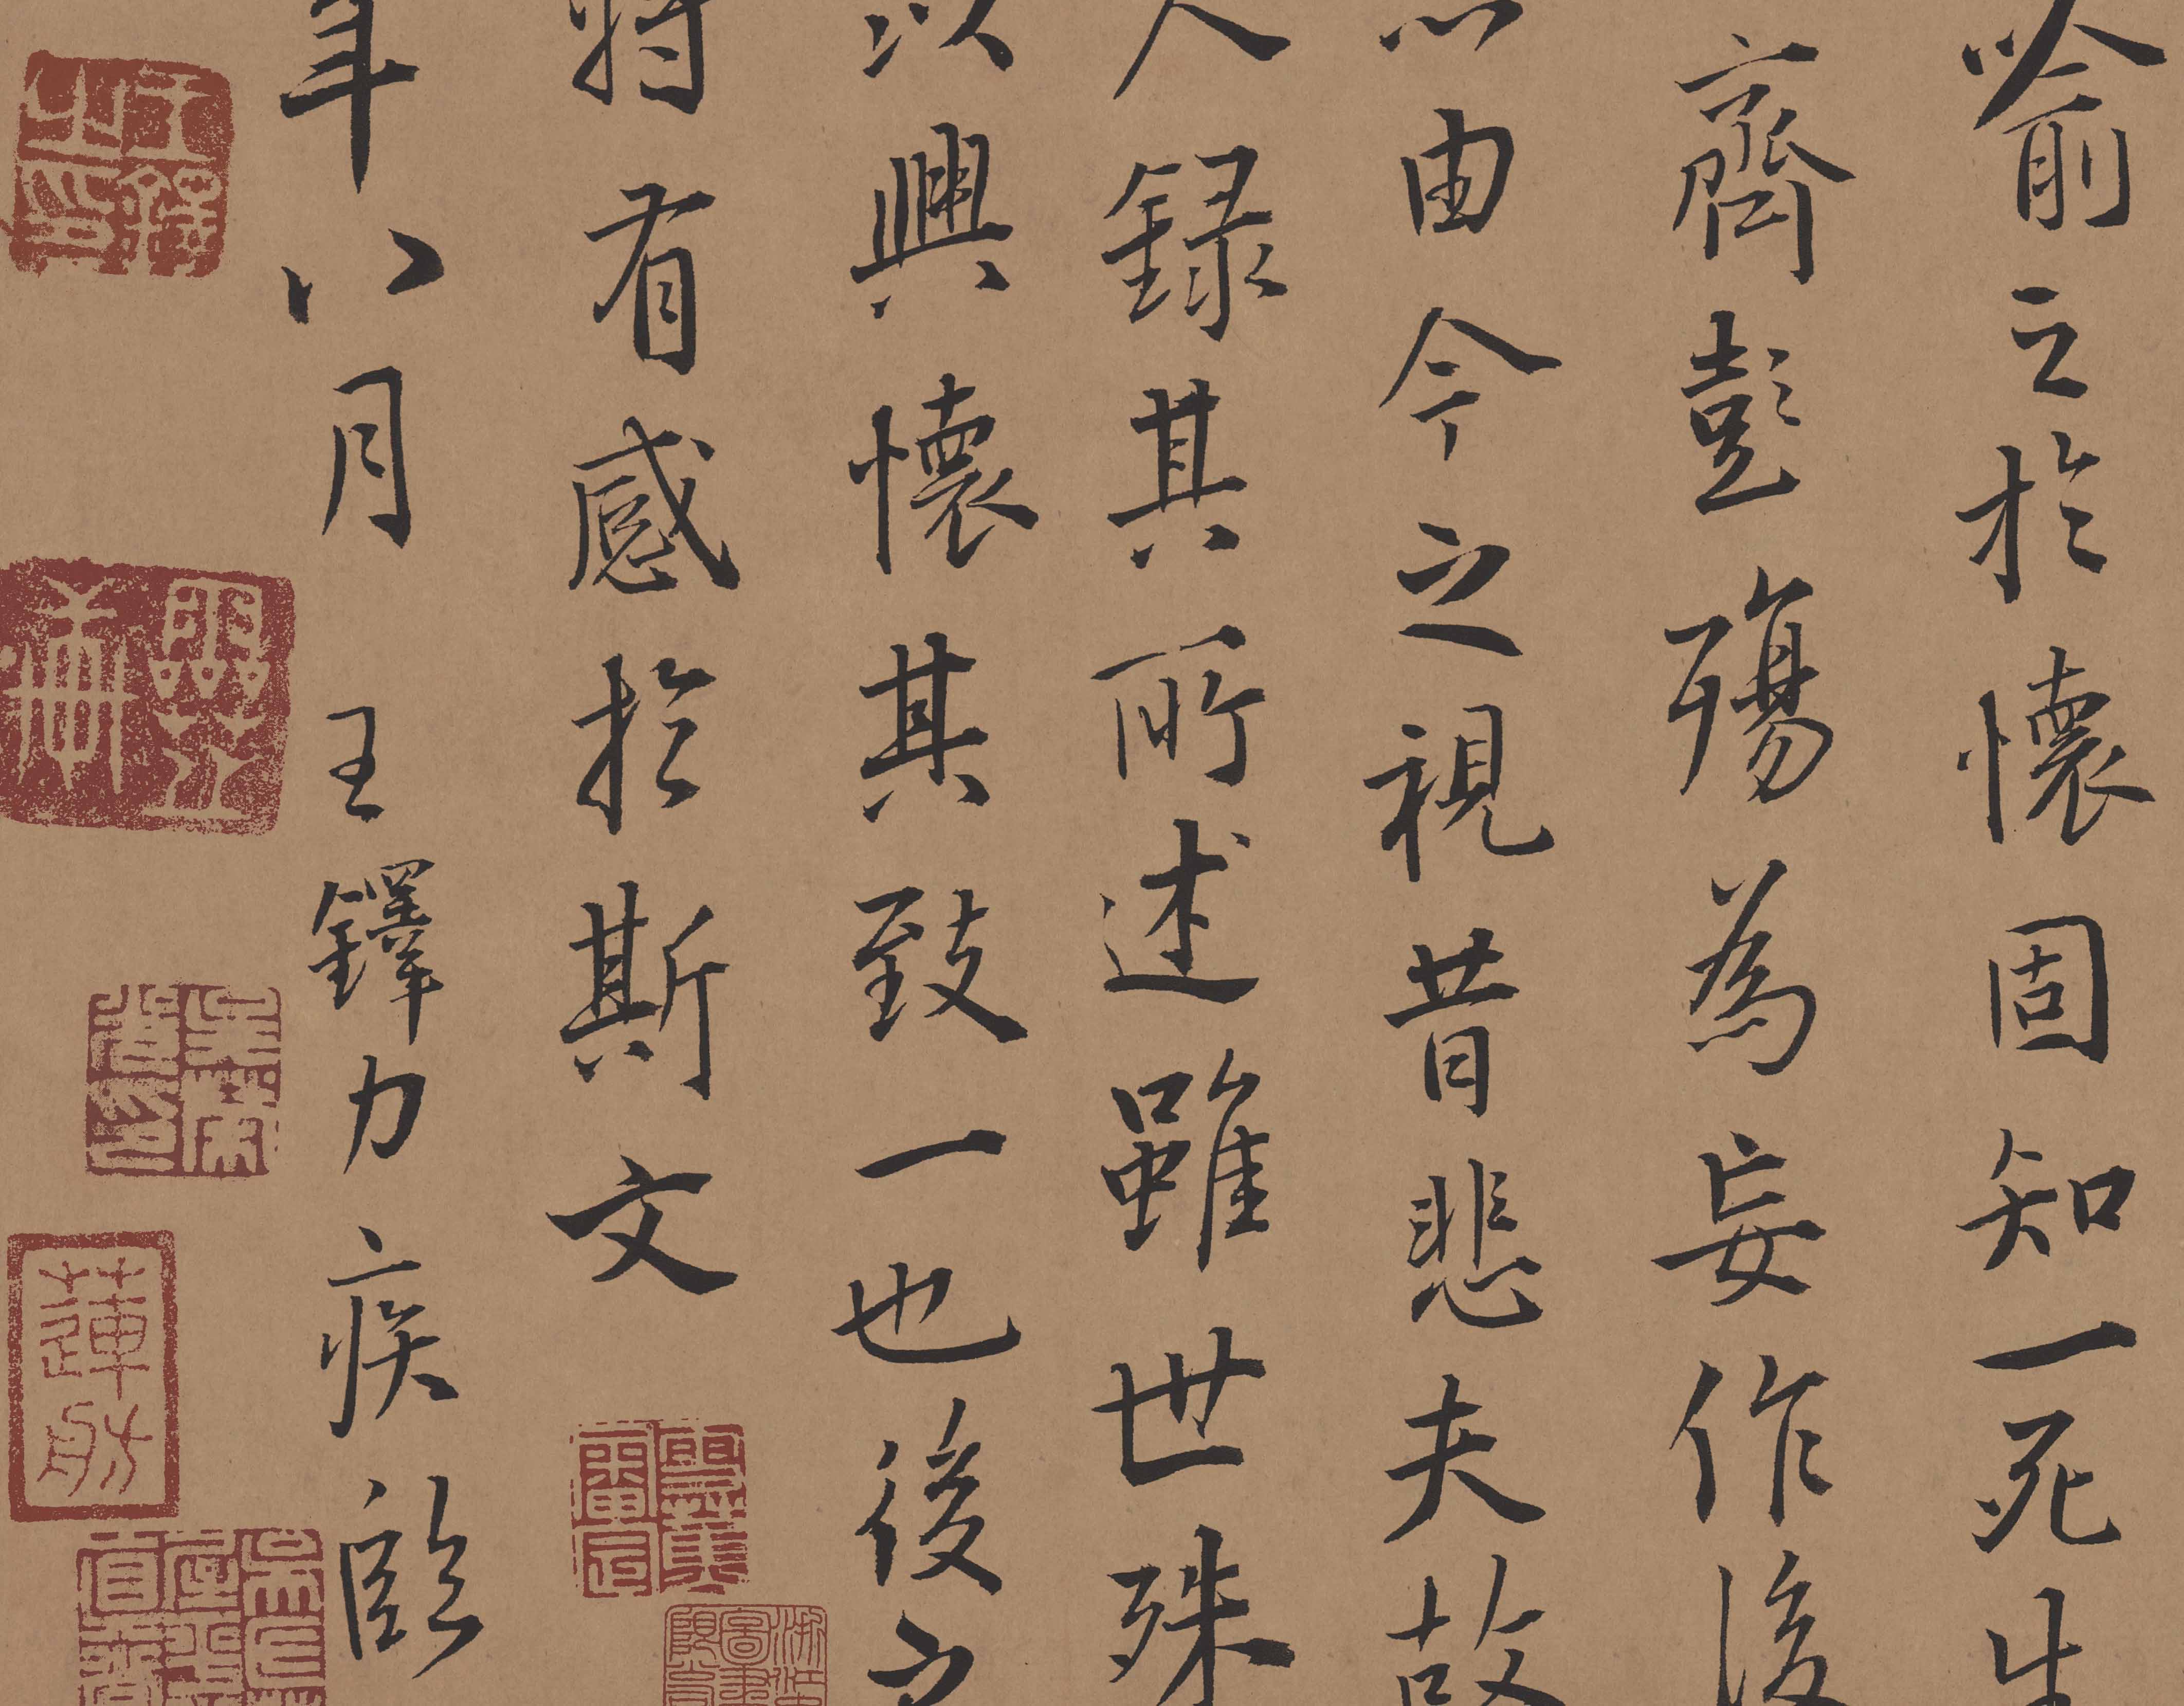 喻之於懷固知一死生
齊彭殤為妄作後
由今之視昔悲夫故
人録其所述雖世殊
以興懷其致一也後之
將有感於斯文
年八月王鐸力疾臨
王鐸之印
蓮舫